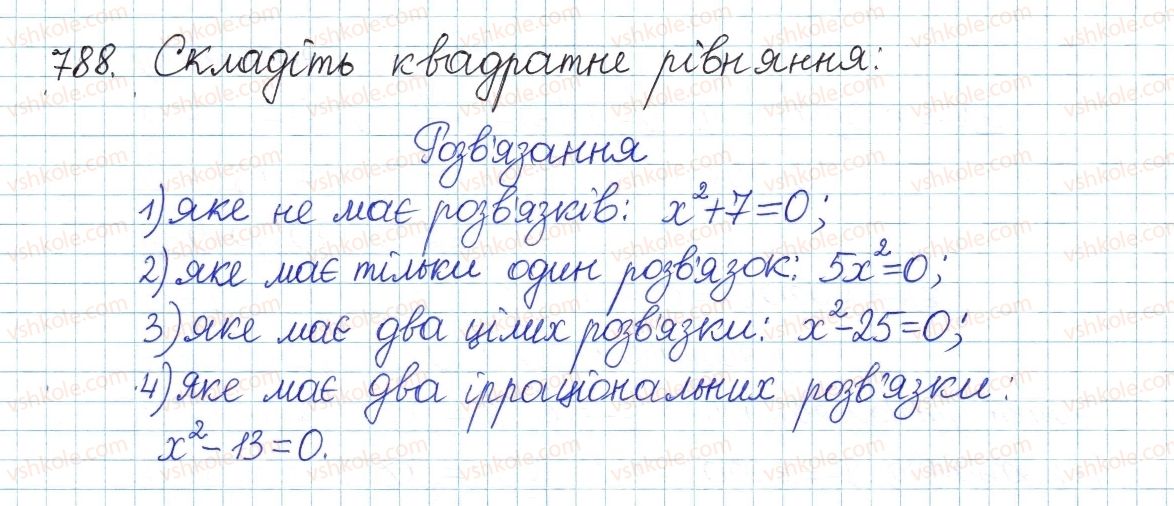 788. Складіть квадратне рівняння:
Розв'язання
1) яке не має розв'язків: x²+7=0;
2) яке має тільки один розв'язок: 5x²=0;
3) яке має два цілих розв'язки: x²-25=0;
4) яке має два ірраціональних розв'язки:
x²-13=0.